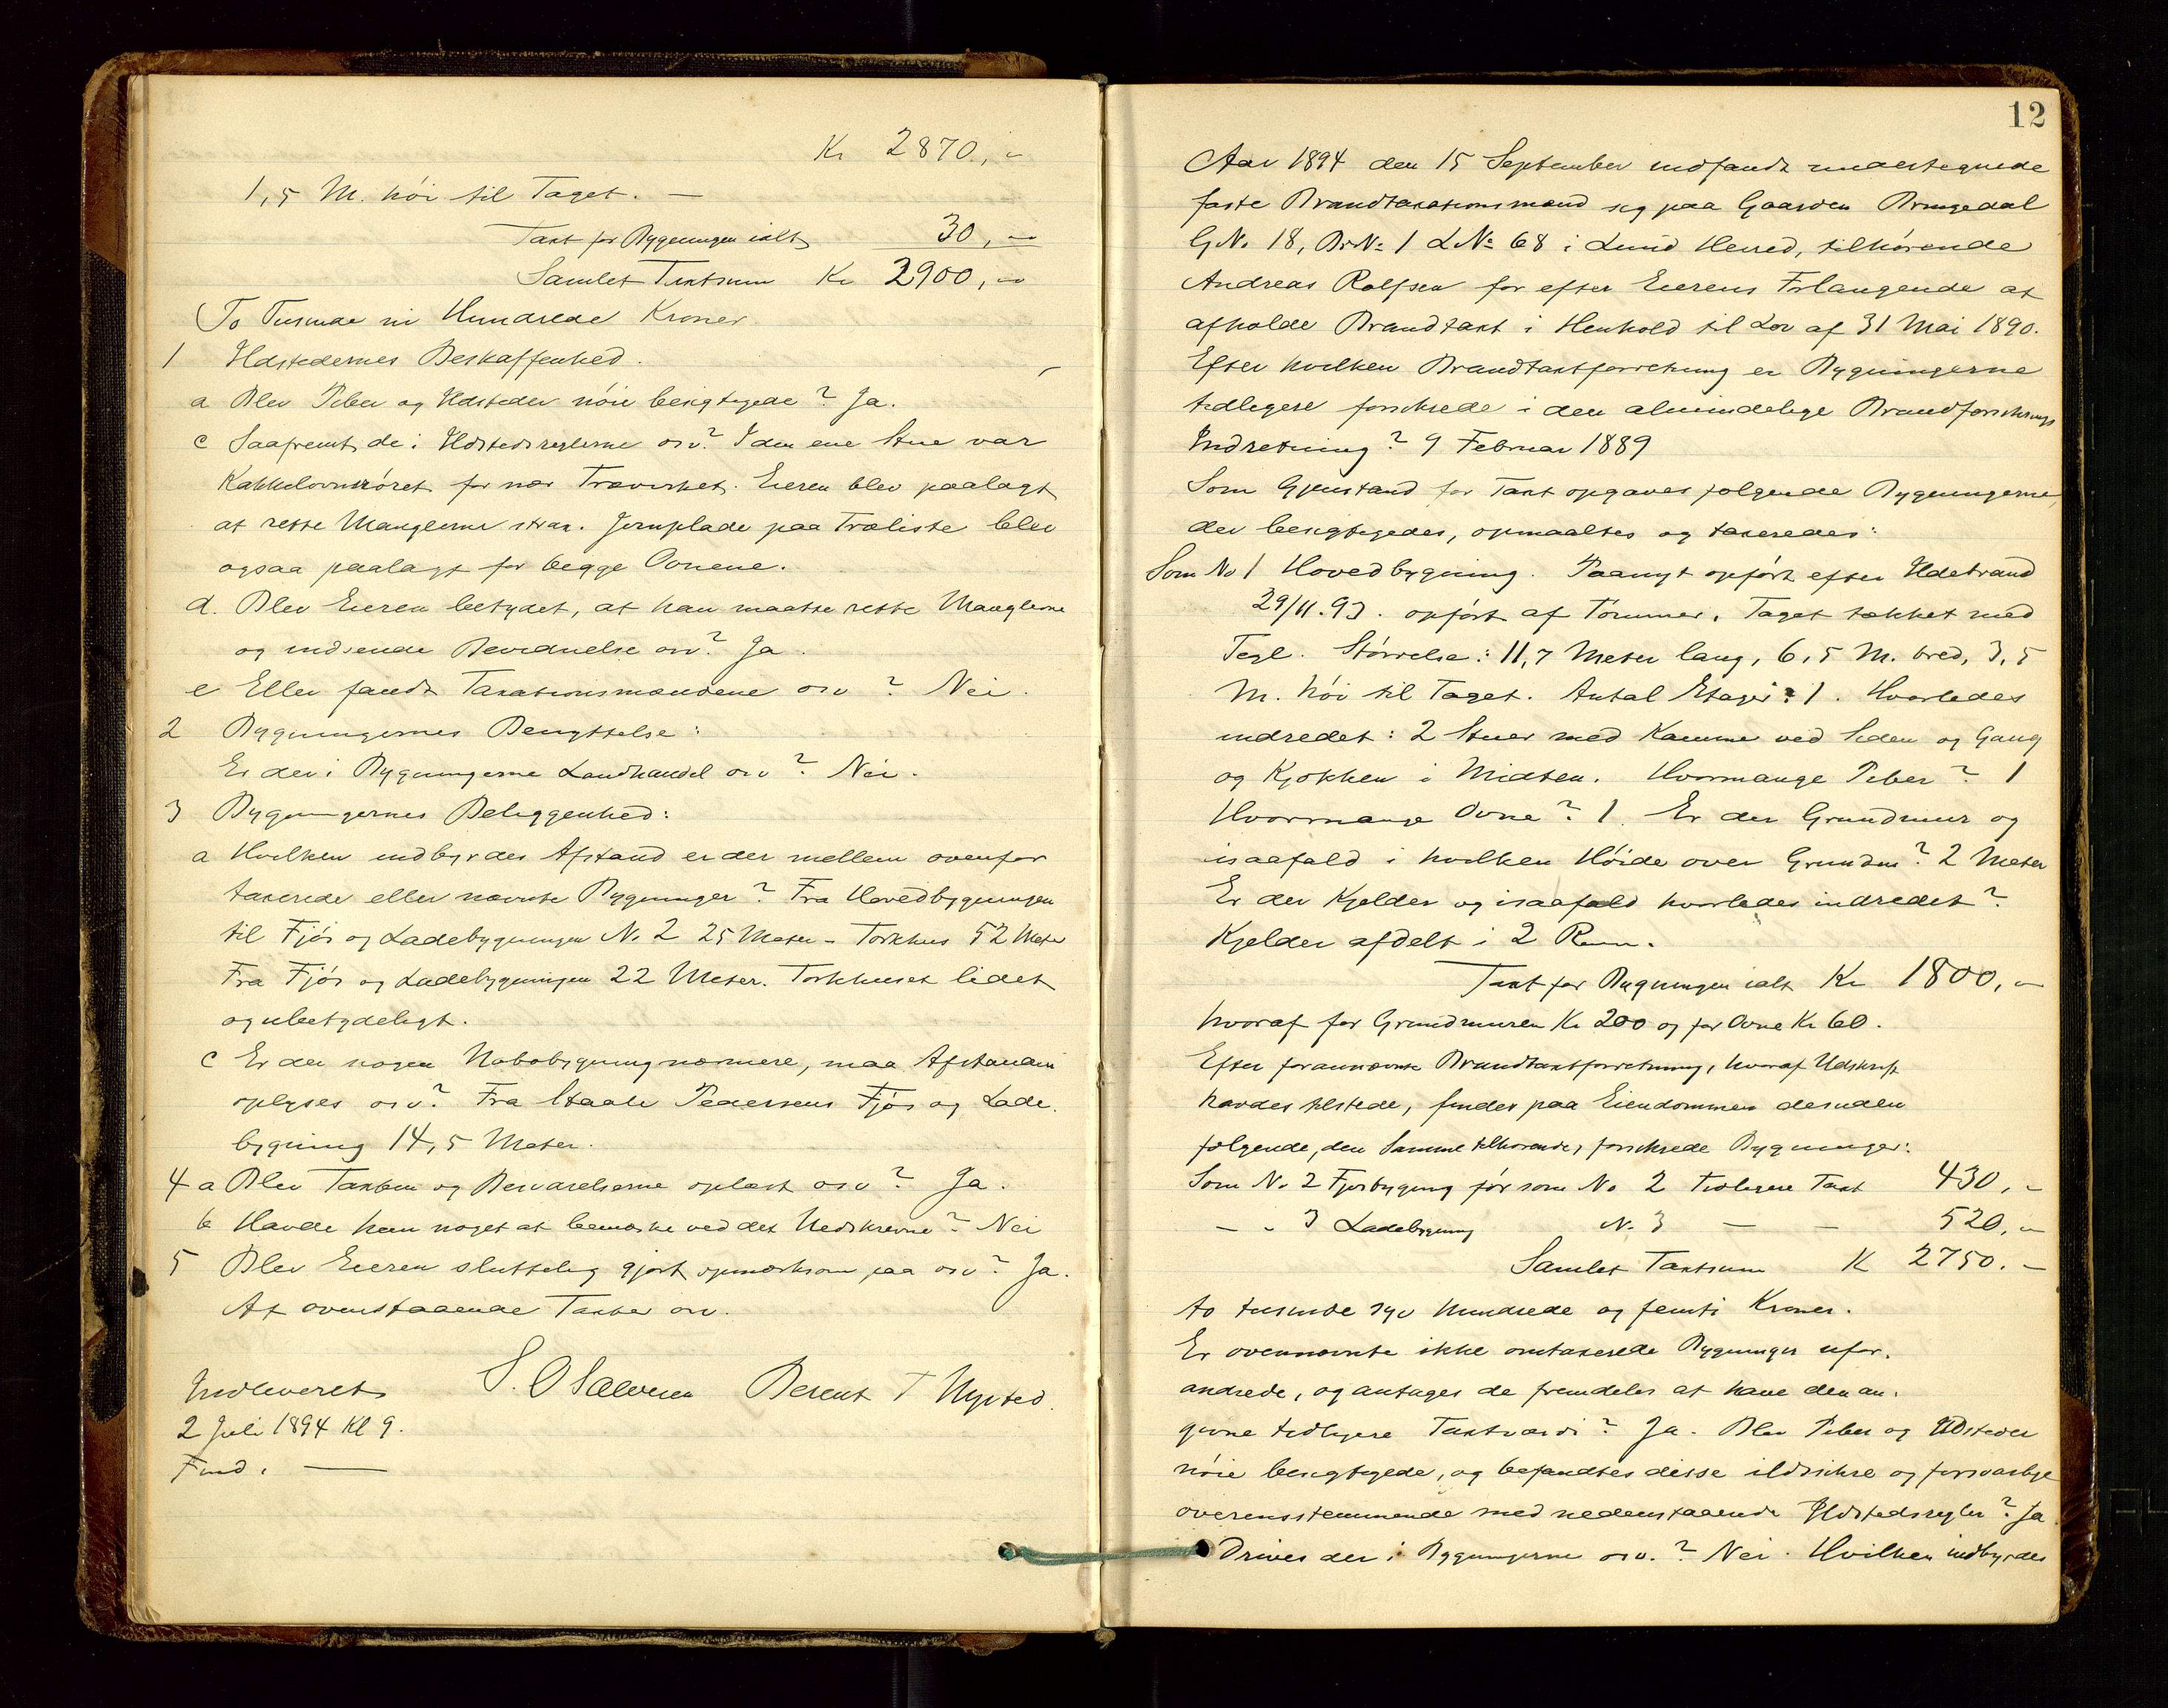 Kr 2870,-
1,5 M. høi til Taget. —
Taxt for Bygningen ialt 30,-
Samlet Taxtsum Kr 2900,-
To Tusinde ni Hundrede Kroner
1 Ildstedernes Beskaffenhed.
a Blev Piber og Ildsteder nöie besigtigede? Ja.
c Saafremt de i Ildstedsreglerne osv? I den ene Stue var
Kakkelovnsröret for nær Træverket. Eieren blev paalagt
at rette Manglerne strax. Jernplade paa Træliste blev
ogsaa paalagt for begge Ovnene.
d. Blev Eieren betydet, at han maatte rette Manglerne
og indsende Bevidnelse osv? Ja.
e Eller fandt Taxationsmændene osv? Nei.
2 Bygningernes Benyttelse:
Er der i Bygningerne Landhandel osv? Nei.
3 Bygningernes Beliggenhed:
a Hvilken indbyrdes Afstand er der mellem ovenfor
taxerede eller nævnte Bygninger? Fra Hovedbygningen
til Fjós og Ladebygningen No 2 25 Meter - Torkhus 52 Meter
Fra Fjós og Ladebygningen 22 Meter. Torkhuset lidet
og ubetydeligt.
c Er der nogen Nabobygning nærmere, maa Afstanden
oplyses osv? Fra Staale Pedersens Fjós og Lade-
bygning 14,5 Meter.
4 a Blev Taxten og Besvarelserne oplæst osv? Ja.
b Havde han noget at bemærke ved det Nedskrevne? Nei
5 Blev Eieren sluttelig gjort opmærksom paa osv? Ja.
At ovenstaaende Taxter osv.
Indleveret S. O Salvesen Berent T Nysted.
2 Juli 1894 Kl 9.
12
Aar 1894 den 15 September indfandt undertegnede
faste Brandtaxationsmænd sig paa Gaarden Bringedal
G.No. 18, Br.No 1 L.No 68 i Lund Herred, tilhörende
Andreas Rolfsen for efter Eierens Forlangende at
afholde Brandtaxt i Henhold til Lov af 31 Mai 1890.
Efter hvilken Brandtaxtforretning er Bygningerne
tidligere forsikrede i den almindelige Brandforsikrings
Indretning? 9 Februar 1889
Som Gjenstand for Taxt opgaves følgende Bygningerne,
der besigtigedes, opmaaltes og taxeredes:
Som No 1 Hovedbygning. Paanyt opfört efter Ildebrand
29/11.93. opfört af Tömmer. Taget tækket med
Tegl. Störrelse: 11,7 Meter lang, 6,5 M. bred, 3,5
M. höi til Taget. Antal Etager: 1. Hvorledes
indredet: 2 Stuer med Kamme ved Siden og Gang
og Kjøkken i Midten. Hvormange Piber? 1
Hvormange Ovne? 1. Er der Grundmur og
isaafald i hvilken Höide over Grunden? 2 Meter
Er der Kjelder og isaafald hvorledes indredet?
Kjelder afdelt i 2 Rum.
Taxt for Bygningen ialt Kr 1800,-
hvoraf for Grundmuren Kr 200 og for Ovne Kr 60.
Efter forannævnte Brandtaxtforretning, hvoraf Udskrift
havdes tilstede, findes paa Eiendommen desuden
følgende, den Samme tilhørende, forsikrede Bygninger:
Som No 2 Fjosbygning för som No 2 tidligere Taxt 430,-
— " 3 Ladebygning No 3 — — 520,-
Samlet Taxtsum K 2750.-
to tusinde syv hundrede og femti Kroner.
Er ovennævnte ikke omtaxerede Bygninger ufor-
andrede, og antages de fremdeles at have den an-
givne tidligere Taxtværdi? Ja. Blev Piber og Ildsteder
nöie besigtigede, og befandtes disse ildsikre og forsvarlige
overensstemmende med nedenstaaende Ildstedsregler? Ja
Drives der i Bygningerne osv.? Nei. Hvilken indbyrdes